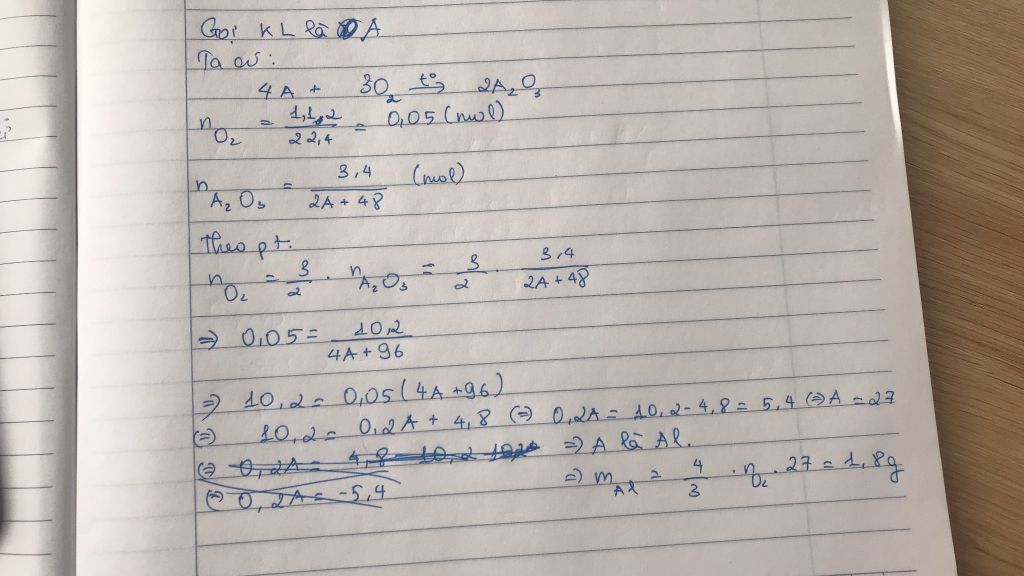 Gọi KL là A
Ta có:
4A + 3O₂ t°→ 2A₂O₃
n O₂ = 1,12/22,4 = 0,05 (mol)
n A₂O₃ = 3,4/(2A + 48) (mol)
Theo pt.
n O₂ = 3/2 . n A₂O₃ = 3/2 . 3,4/(2A + 48)
⇒ 0,05 = 10,2/(4A + 96)
⇒ 10,2 = 0,05 (4A + 96)
⇔ 10,2 = 0,2A + 4,8 ⇔ 0,2A = 10,2 - 4,8 = 5,4 ⇔ A = 27
⇔ 0,2A = 4,8 - 10,2
⇒ A là Al.
⇔ 0,2A = -5,4
⇒ m Al = 4/3 . n O₂ . 27 = 1,8g